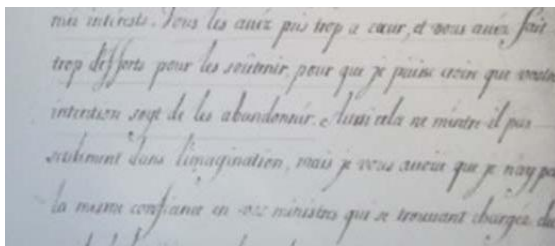 mes interests. Vous les avez pris trop a cœur, et vous avez fait
trop defforts pour les soutenir, pour que je puisse croire que vostre
intention soyt de les abandonnir. Aussi cela ne mentre il pas
seulement dans limagination, mais je vous avoüe que je nay pas
la mesme confiance en voz ministres qui se trouvant chargez du